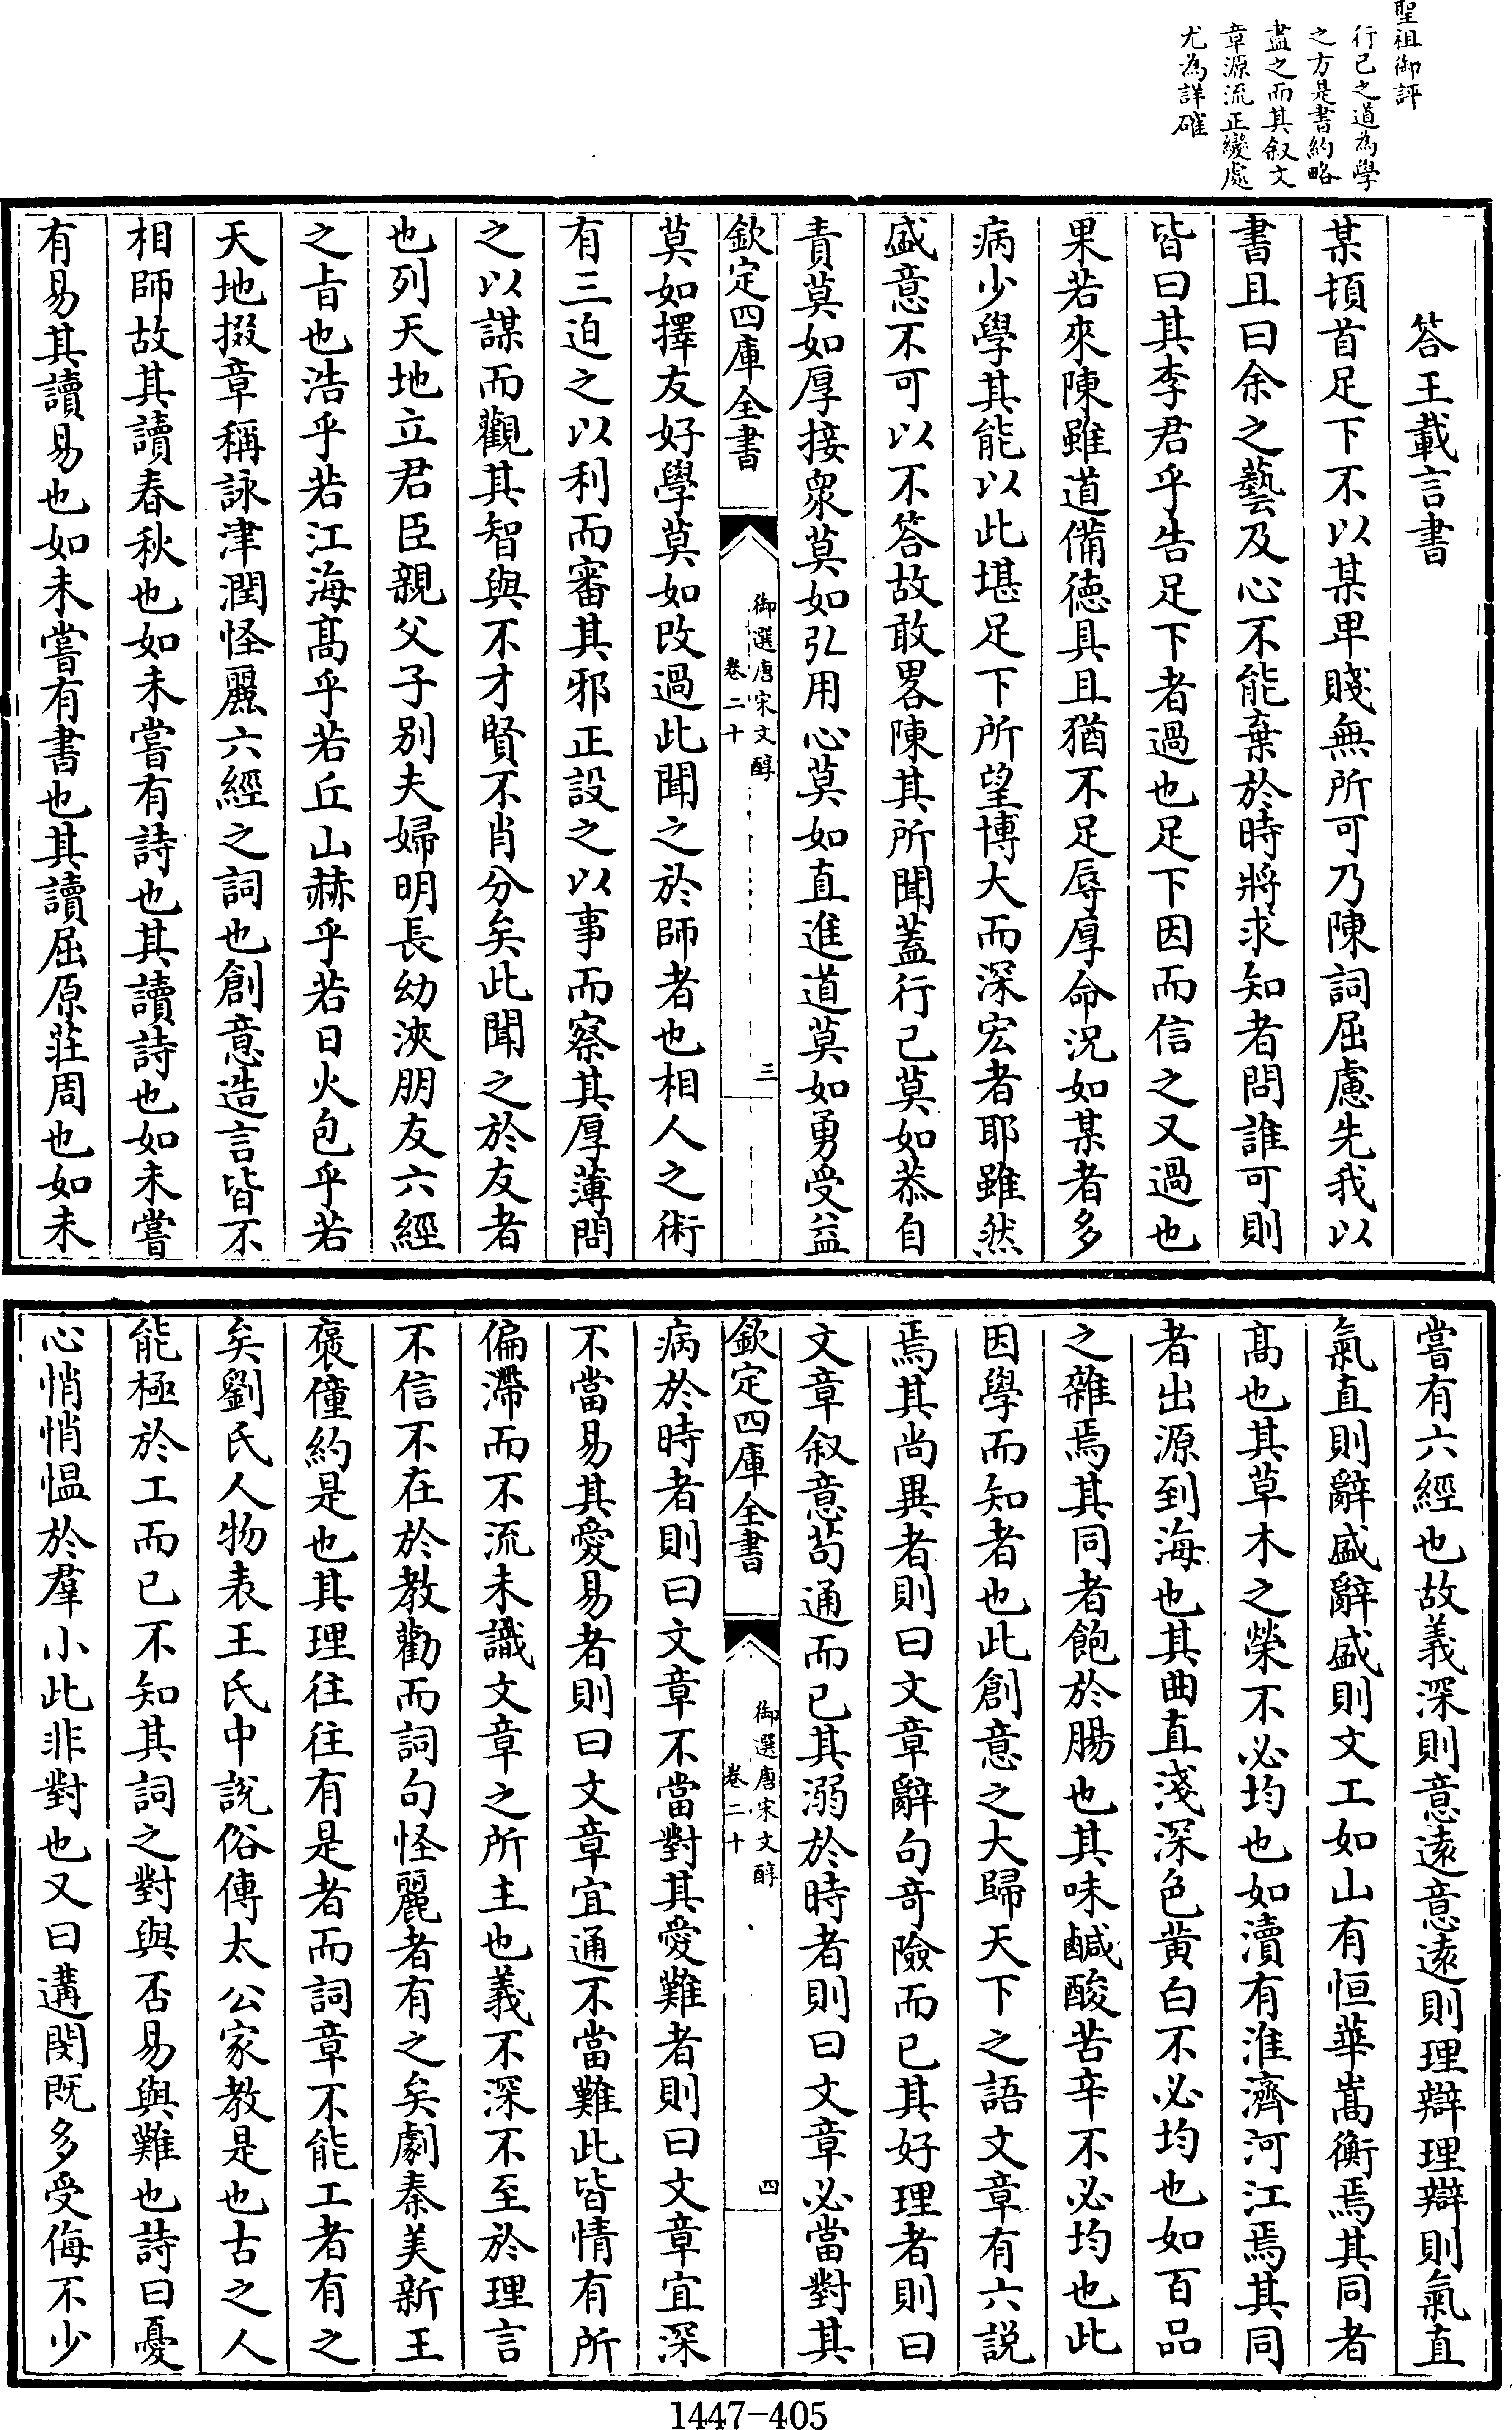 聖祖御評
行己之道為學
之方是書約略
盡之而其叙文
章源流正變處
尤為詳確
答王載言書
某頓首足下不以某卑賤無所可乃陳詞屈慮先我以
書且曰余之藝及心不能棄於時將求知者問誰可則
皆曰其李君乎告足下者過也足下因而信之又過也
果若來陳雖道備德具且猶不足辱厚命況如某者多
病少學其能以此堪足下所望博大而深宏者耶雖然
盛意不可以不答故敢畧陳其所聞蓋行己莫如恭自
責莫如厚接衆莫如弘用心莫如直進道莫如勇受益
欽定四庫全書
御選唐宋文醇
卷二十
三
莫如擇友好學莫如改過此聞之於師者也相人之術
有三迫之以利而審其邪正設之以事而察其厚薄問
之以謀而觀其智與不才賢不肖分矣此聞之於友者
也列天地立君臣親父子别夫婦明長幼浹朋友六經
之㫖也浩乎若江海髙乎若丘山赫乎若日火包乎若
天地掇章稱詠津潤怪麗六經之詞也創意造言皆不
相師故其讀春秋也如未嘗有詩也其讀詩也如未嘗
有易其讀易也如未嘗有書也其讀屈原莊周也如未
嘗有六經也故義深則意遠意遠則理辯理辯則氣直
氣直則辭盛辭盛則文工如山有恒華嵩衡焉其同者
髙也其草木之榮不必均也如瀆有淮濟河江焉其同
者出源到海也其曲直淺深色黄白不必均也如百品
之雜焉其同者飽於腸也其味鹹酸苦辛不必均也此
因學而知者也此創意之大歸天下之語文章有六説
焉其尚異者則曰文章辭句竒險而已其好理者則曰
文章叙意苟通而已其溺於時者則曰文章必當對其
欽定四庫全書
御選唐宋文醇
卷二十
四
病於時者則曰文章不當對其愛難者則曰文章宜深
不當易其愛易者則曰文章宜通不當難此皆情有所
偏滯而不流未識文章之所主也義不深不至於理言
不信不在於教勸而詞句怪麗者有之矣劇秦美新王
褒僮約是也其理往往有是者而詞章不能工者有之
矣劉氏人物表王氏中說俗傳太公家教是也古之人
能極於工而已不知其詞之對與否易與難也詩曰憂
心悄悄愠於羣小此非對也又曰遘閔既多受侮不少
1447-405